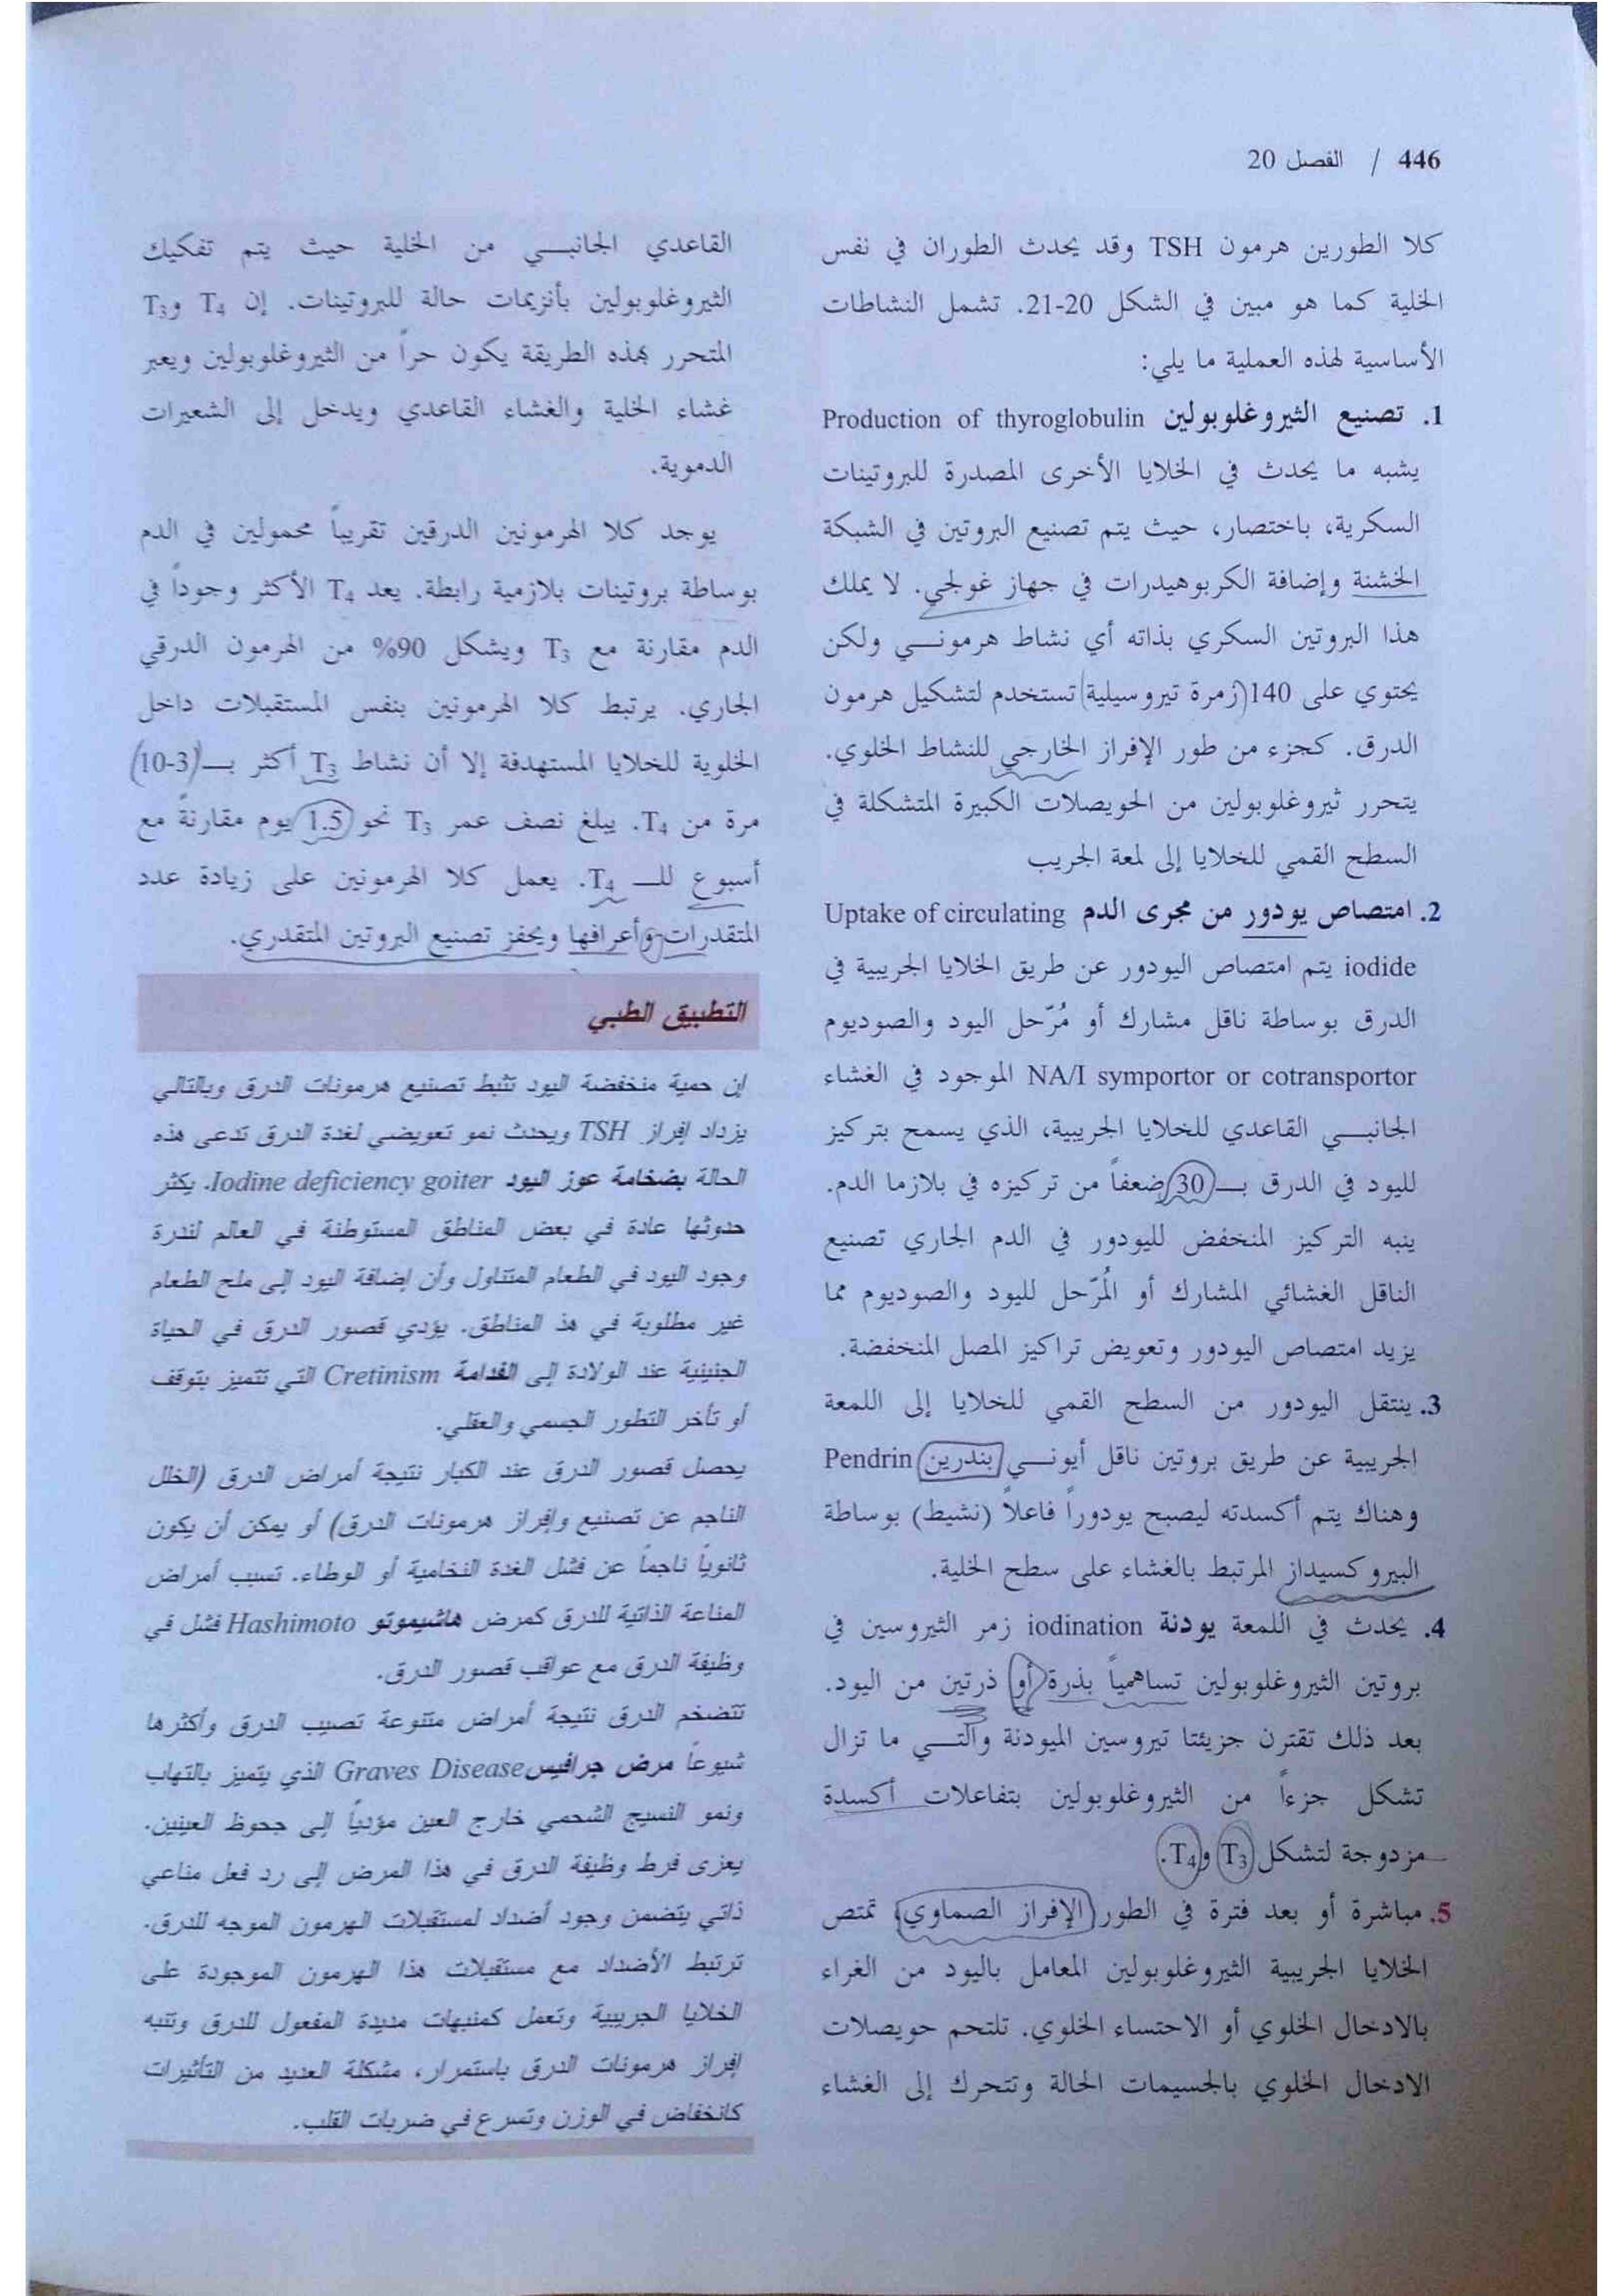 446 / الفصل 20
كلا الطورين هرمون TSH وقد يحدث الطوران في نفس
الخلية كما هو مبين في الشكل 20-21. تشمل النشاطات
الأساسية لهذه العملية ما يلي:
1. تصنيع الثيروغلوبولين Production of thyroglobulin
يشبه ما يحدث في الخلايا الأخرى المصدرة للبروتينات
السكرية، باختصار، حيث يتم تصنيع البروتين في الشبكة
الخشنة وإضافة الكربوهيدرات في جهاز غولجي. لا يملك
هذا البروتين السكري بذاته أي نشاط هرموني ولكن
يحتوي على 140 (زمرة تيروسيلية) تستخدم لتشكيل هرمون
الدرق. كجزء من طور الإفراز الخارجي للنشاط الخلوي.
يتحرر ثيروغلوبولين من الحويصلات الكبيرة المتشكلة في
السطح القمي للخلايا إلى لمعة الجريب
2. امتصاص يودور من مجرى الدم Uptake of circulating
iodide يتم امتصاص اليودور عن طريق الخلايا الجريبية في
الدرق بوساطة ناقل مشارك أو مُرّحل اليود والصوديوم
NA/I symportor or cotransportor الموجود في الغشاء
الجانبي القاعدي للخلايا الجريبية، الذي يسمح بتركيز
لليود في الدرق بـ 30 ضعفاً من تركيزه في بلازما الدم.
ينبه التركيز المنخفض لليودور في الدم الجاري تصنيع
الناقل الغشائي المشارك أو المُرّحل لليود والصوديوم مما
يزيد امتصاص اليودور وتعويض تراكيز المصل المنخفضة.
3. ينتقل اليودور من السطح القمي للخلايا إلى اللمعة
الجريبية عن طريق بروتين ناقل أيوني بندرين Pendrin
وهناك يتم أكسدته ليصبح يودوراً فاعلاً (نشيط) بوساطة
البيروكسيداز المرتبط بالغشاء على سطح الخلية.
4. يحدث في اللمعة يودنة iodination زمر الثيروسين في
بروتين الثيروغلوبولين تساهمياً بذرة أو ذرتين من اليود.
بعد ذلك تقترن جزيئتا تيروسين الميودنة والتي ما تزال
تشكل جزءاً من الثيروغلوبولين بتفاعلات أكسدة
مزدوجة لتشكل T3 وT4.
5. مباشرة أو بعد فترة في الطور (الإفراز الصماوي) تمتص
الخلايا الجريبية الثيروغلوبولين المعامل باليود من الغراء
بالادخال الخلوي أو الاحتساء الخلوي. تلتحم حويصلات
الادخال الخلوي بالجسيمات الحالة وتتحرك إلى الغشاء
القاعدي الجانبي من الخلية حيث يتم تفكيك
الثيروغلوبولين بأنزيمات حالة للبروتينات. إن T4 وT3
المتحرر بهذه الطريقة يكون حراً من الثيروغلوبولين ويعبر
غشاء الخلية والغشاء القاعدي ويدخل إلى الشعيرات
الدموية.
يوجد كلا الهرمونين الدرقين تقريباً محمولين في الدم
بوساطة بروتينات بلازمية رابطة. يعد T4 الأكثر وجوداً في
الدم مقارنة مع T3 ويشكل 90% من الهرمون الدرقي
الجاري. يرتبط كلا الهرمونين بنفس المستقبلات داخل
الخلوية للخلايا المستهدفة إلا أن نشاط T3 أكثر بـ (3-10)
مرة من T4. يبلغ نصف عمر T3 نحو 1.5 يوم مقارنةً مع
أسبوع للـ T4. يعمل كلا الهرمونين على زيادة عدد
المتقدرات وأعرافها ويحفز تصنيع البروتين المتقدري.
التطبيق الطبي
إن حمية منخفضة اليود تثبط تصنيع هرمونات الدرق وبالتالي
يزداد إفراز TSH ويحدث نمو تعويضي لغدة الدرق تدعى هذه
الحالة بضخامة عوز اليود Iodine deficiency goiter. يكثر
حدوثها عادة في بعض المناطق المستوطنة في العالم لندرة
وجود اليود في الطعام المتناول وأن إضافة اليود إلى ملح الطعام
غير مطلوبة في هذ المناطق. يؤدي قصور الدرق في الحياة
الجنينية عند الولادة إلى القدامة Cretinism التي تتميز بتوقف
أو تأخر التطور الجسمي والعقلي.
يحصل قصور الدرق عند الكبار نتيجة أمراض الدرق (الخلل
الناجم عن تصنيع وإفراز هرمونات الدرق) أو يمكن أن يكون
ثانوياً ناجماً عن فشل الغدة النخامية أو الوطاء. تسبب أمراض
المناعة الذاتية للدرق كمرض هاشيموتو Hashimoto فشل في
وظيفة الدرق مع عواقب قصور الدرق.
تتضخم الدرق نتيجة أمراض متنوعة تصيب الدرق وأكثرها
شيوعاً مرض جرافيس Graves Disease الذي يتميز بالتهاب
ونمو النسيج الشحمي خارج العين مؤدياً إلى جحوظ العينين.
يعزى فرط وظيفة الدرق في هذا المرض إلى رد فعل مناعي
ذاتي يتضمن وجود أضداد لمستقبلات الهرمون الموجه للدرق.
ترتبط الأضداد مع مستقبلات هذا الهرمون الموجودة على
الخلايا الجريبية وتعمل كمنبهات مديدة المفعول للدرق وتنبه
إفراز هرمونات الدرق باستمرار، مشكلة العديد من التأثيرات
كانخفاض في الوزن وتسرع في ضربات القلب.